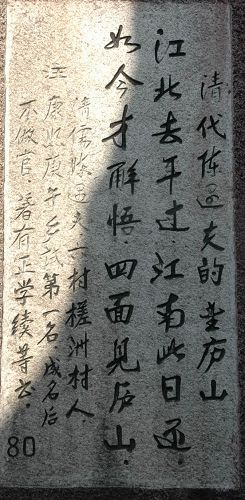 清代陈遥夫的登历山
江北去年过．江南此日还．
如今才解悟．四面见历山．
清儒陈遥夫．一村槎洲村人．
注 康熙庚午乡试第一名．成名后
不做官．著有正学续等书．
80